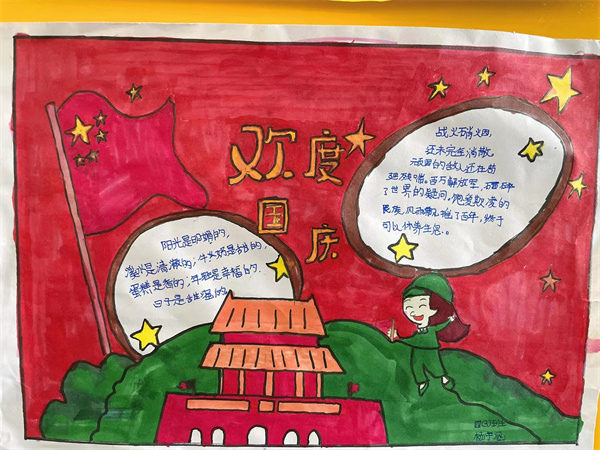 欢度
国
庆
战火硝烟,
还未完全消散,
顽固的敌人还在苟
延残喘。百万解放军,
了世界的疑问。饱受欺凌的
民族,风雨飘摇了百年,终于
可以休养生息。
阳光是明媚的,
是清澈的;牛奶是甜的,
蛋糕是香的;生活是幸福的.
日子是甜蜜的
四(3)班